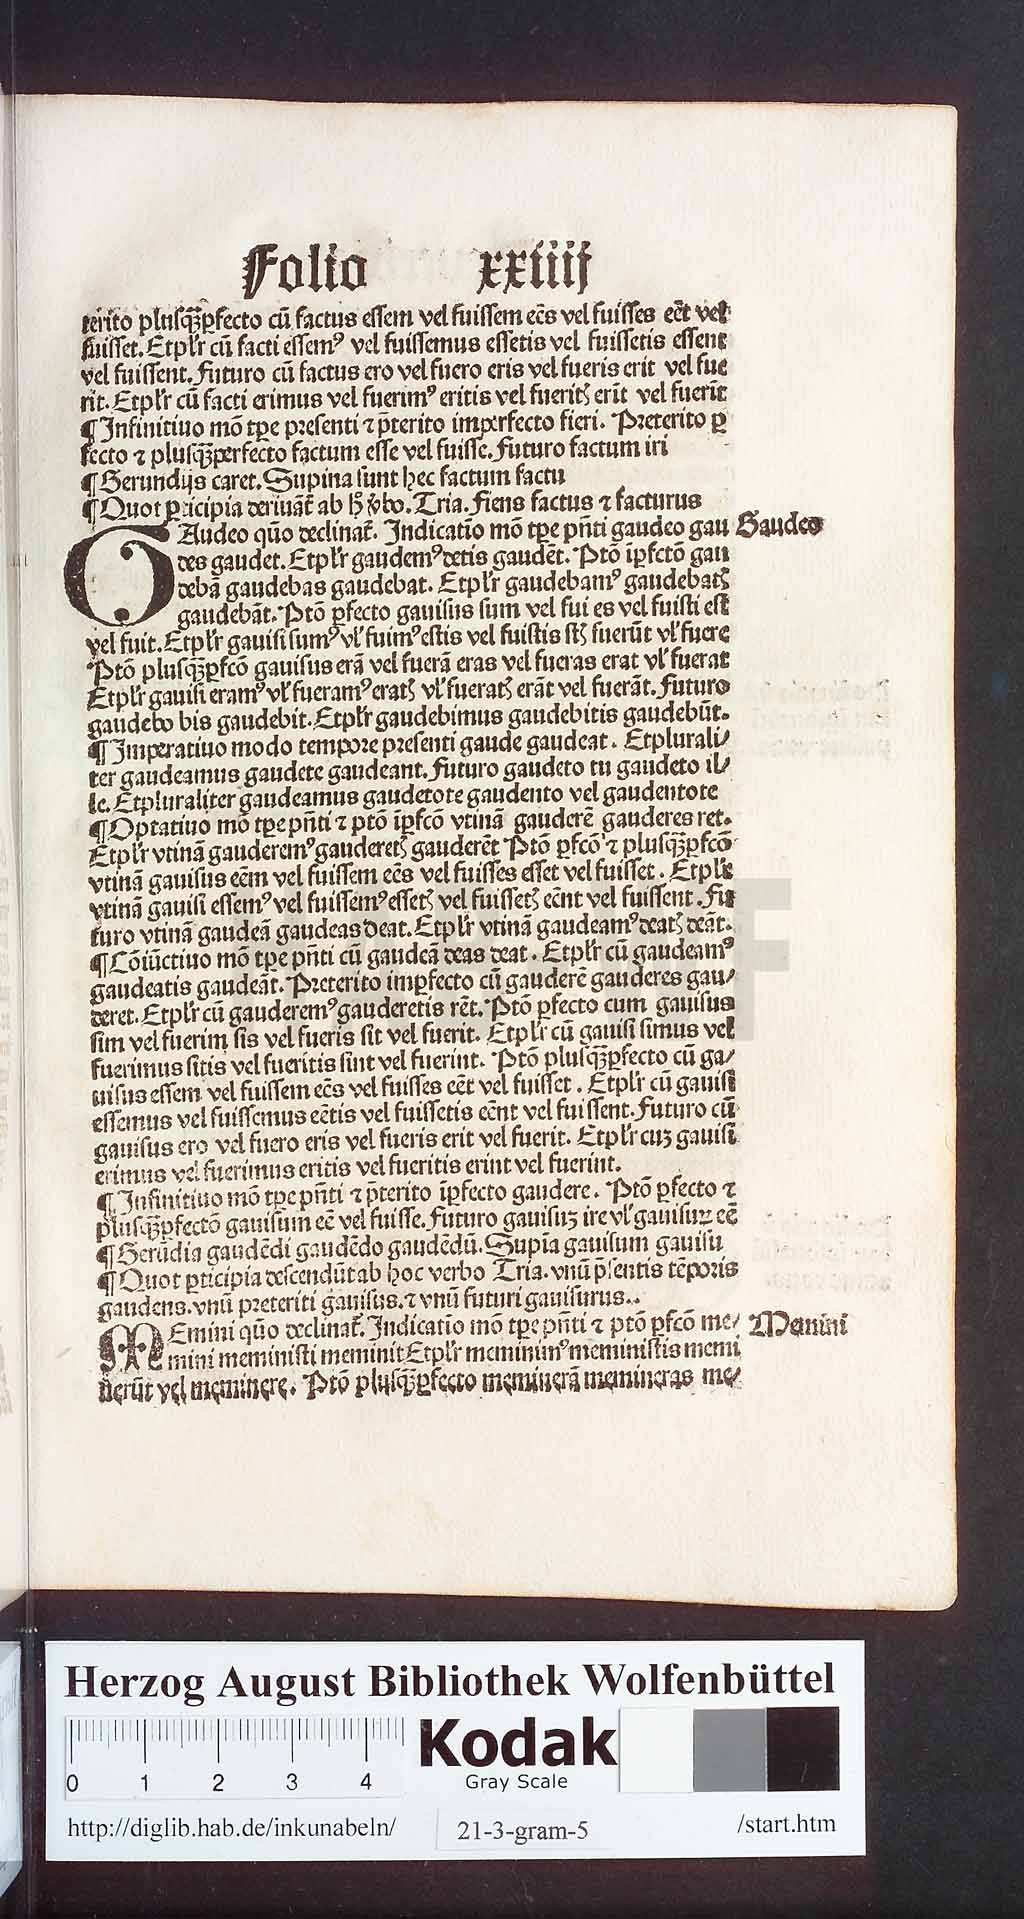 Folio xxiiij
terito plusq̃ꝑfecto cũ factus essem vel fuissem eẽs vel fuisses eẽt vel
fuisset. Etpl'r cũ facti essemꝰ vel fuissemus essetis vel fuissetis essent
vel fuissent. Futuro cũ factus ero vel fuero eris vel fueris erit vel fue
rit. Etpl'r cũ facti erimus vel fuerimꝰ eritis vel fueritꝭ erĩt vel fuerĩt
¶ Infinitiuo mõ tp̃e presenti ⁊ p̃terito imperfecto fieri. Preterito ꝑ
fecto ⁊ plusq̃ꝫperfecto factum esse vel fuisse. Futuro factum iri
¶ Gerundijs caret. Supina sunt hec factum factu
¶ Quot ꝑticipia deriuãt̃ ab hͦ v̾bo. Tria. Fiens factus ⁊ facturus
GAudeo quõ declinat̃. Indicatiõ mõ tp̃e pñti gaudeo gau Gaudeo
des gaudet. Etpl'r gaudemꝰ detis gaudẽt. Ptõ ĩꝑfctõ gau
debã gaudebas gaudebat. Etpl'r gaudebamꝰ gaudebatꝭ
gaudebãt. Ptõ ꝑfecto gauisus sum vel fui es vel fuisti est
vel fuit. Etpl'r gauisi sumꝰ vl' fuimꝰ estis vel fuistis st̃ fuerũt vl' fuere
Ptõ plusq̃ꝫꝑfcõ gauisus erã vel fuerã eras vel fueras erat vl' fuerat
Etpl'r gauisi eramꝰ vl' fueramꝰ eratꝭ vl' fueratꝭ erãt vel fuerãt. Futuro
gaudebo bis gaudebit. Etpl'r gaudebimus gaudebitis gaudebũt.
¶ Imperatiuo modo tempore presenti gaude gaudeat. Etplurali/
ter gaudeamus gaudete gaudeant. Futuro gaudeto tu gaudeto il/
le. Etpluraliter gaudeamus gaudetote gaudento vel gaudentote
¶ Optatiuo mõ tp̃e pñti ⁊ ptõ ĩꝑfcõ vtinã gauderẽ gauderes ret.
Etpl'r vtinã gauderemꝰ gauderetꝭ gauderẽt Ptõ ꝑfcõ ⁊ plusq̃ꝫꝑfcõ
vtinã gauisus eẽm vel fuissem eẽs vel fuisses esset vel fuisset. Etpl'r
vtinã gauisi essemꝰ vel fuissemꝰ essetꝭ vel fuissetꝭ eẽnt vel fuissent. Fu
turo vtinã gaudeã gaudeas deat. Etpl'r vtinã gaudeamꝰ deatꝭ deãt.
¶ Cõiũctiuo mõ tp̃e pñti cũ gaudeã deas deat. Etpl'r cũ gaudeamꝰ
gaudeatis gaudeãt. Preterito imꝑfecto cũ gauderẽ gauderes gau/
deret. Etpl'r cũ gauderemꝰ gauderetis rẽt. Ptõ ꝑfecto cum gauisus
sim vel fuerim sis vel fueris sit vel fuerit. Etpl'r cũ gauisi simus vel
fuerimus sitis vel fueritis sint vel fuerint. Ptõ plusq̃ꝫꝑfecto cũ ga/
uisus essem vel fuissem eẽs vel fuisses eẽt vel fuisset. Etpl'r cũ gauisi
essemus vel fuissemus eẽtis vel fuissetis eẽnt vel fuissent. Futuro cũ
gauisus ero vel fuero eris vel fueris erit vel fuerit. Etpl'r cuꝫ gauisi
erimus vel fuerimus eritis vel fueritis erint vel fuerint.
¶ Infinitiuo mõ tp̃e pñti ⁊ p̃terito ĩꝑfecto gaudere. Ptõ ꝑfecto ⁊
plusq̃ꝫꝑfectõ gauisum eẽ vel fuisse. Futuro gauisuꝫ ire vl' gauisuꝝ eẽ
¶ Gerũdia gaudẽdi gaudẽdo gaudẽdũ. Supĩa gauisum gauisu
¶ Quot ꝑticipia descendũt ab hoc verbo Tria. vnũ p̃sentis tẽporis
gaudens. vnũ preteriti gauisus. ⁊ vnũ futuri gauisurus..
MEmini quõ declinat̃. Indicatio mõ tp̃e pñti ⁊ ptõ ꝑfcõ me/ Memini
mini meministi meminit Etpl'r meminimꝰ meministis memi
nerũt vel meminere. Ptõ plusq̃ꝫꝑfecto meminerã memineras me/
Herzog August Bibliothek Wolfenbüttel
0 1 2 3 4
Kodak
Gray Scale
http://diglib.hab.de/inkunabeln/ 21-3-gram-5 /start.htm